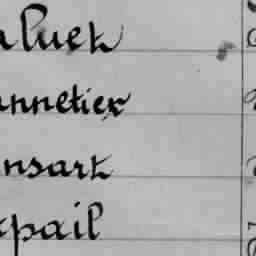 aluet
annetier
nsart
spail